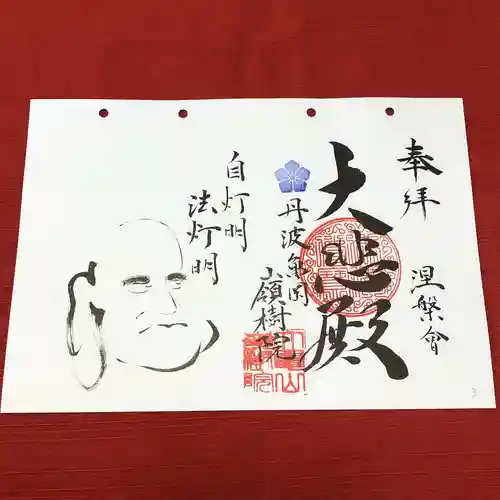 奉拝
涅槃會
大悲殿
丹波亀岡
嶺樹院
自灯明
法灯明
3